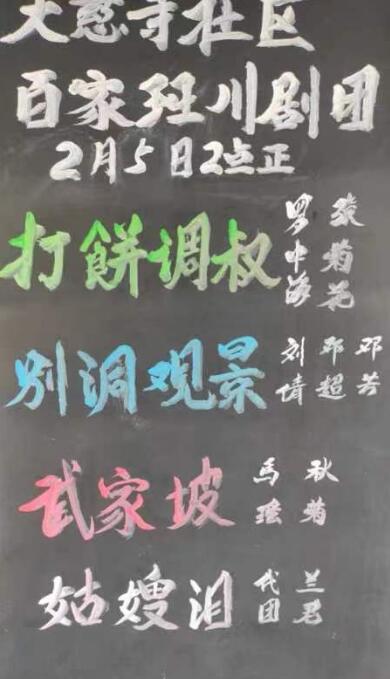 大慈寺社区
百家班川剧团
2月5日2点正
打餅调叔 罗中海 菊花
别洞观景 刘倩 邓超 邓芳
武家坡 马瑶 秋菊
姑嫂泪 代团 兰君